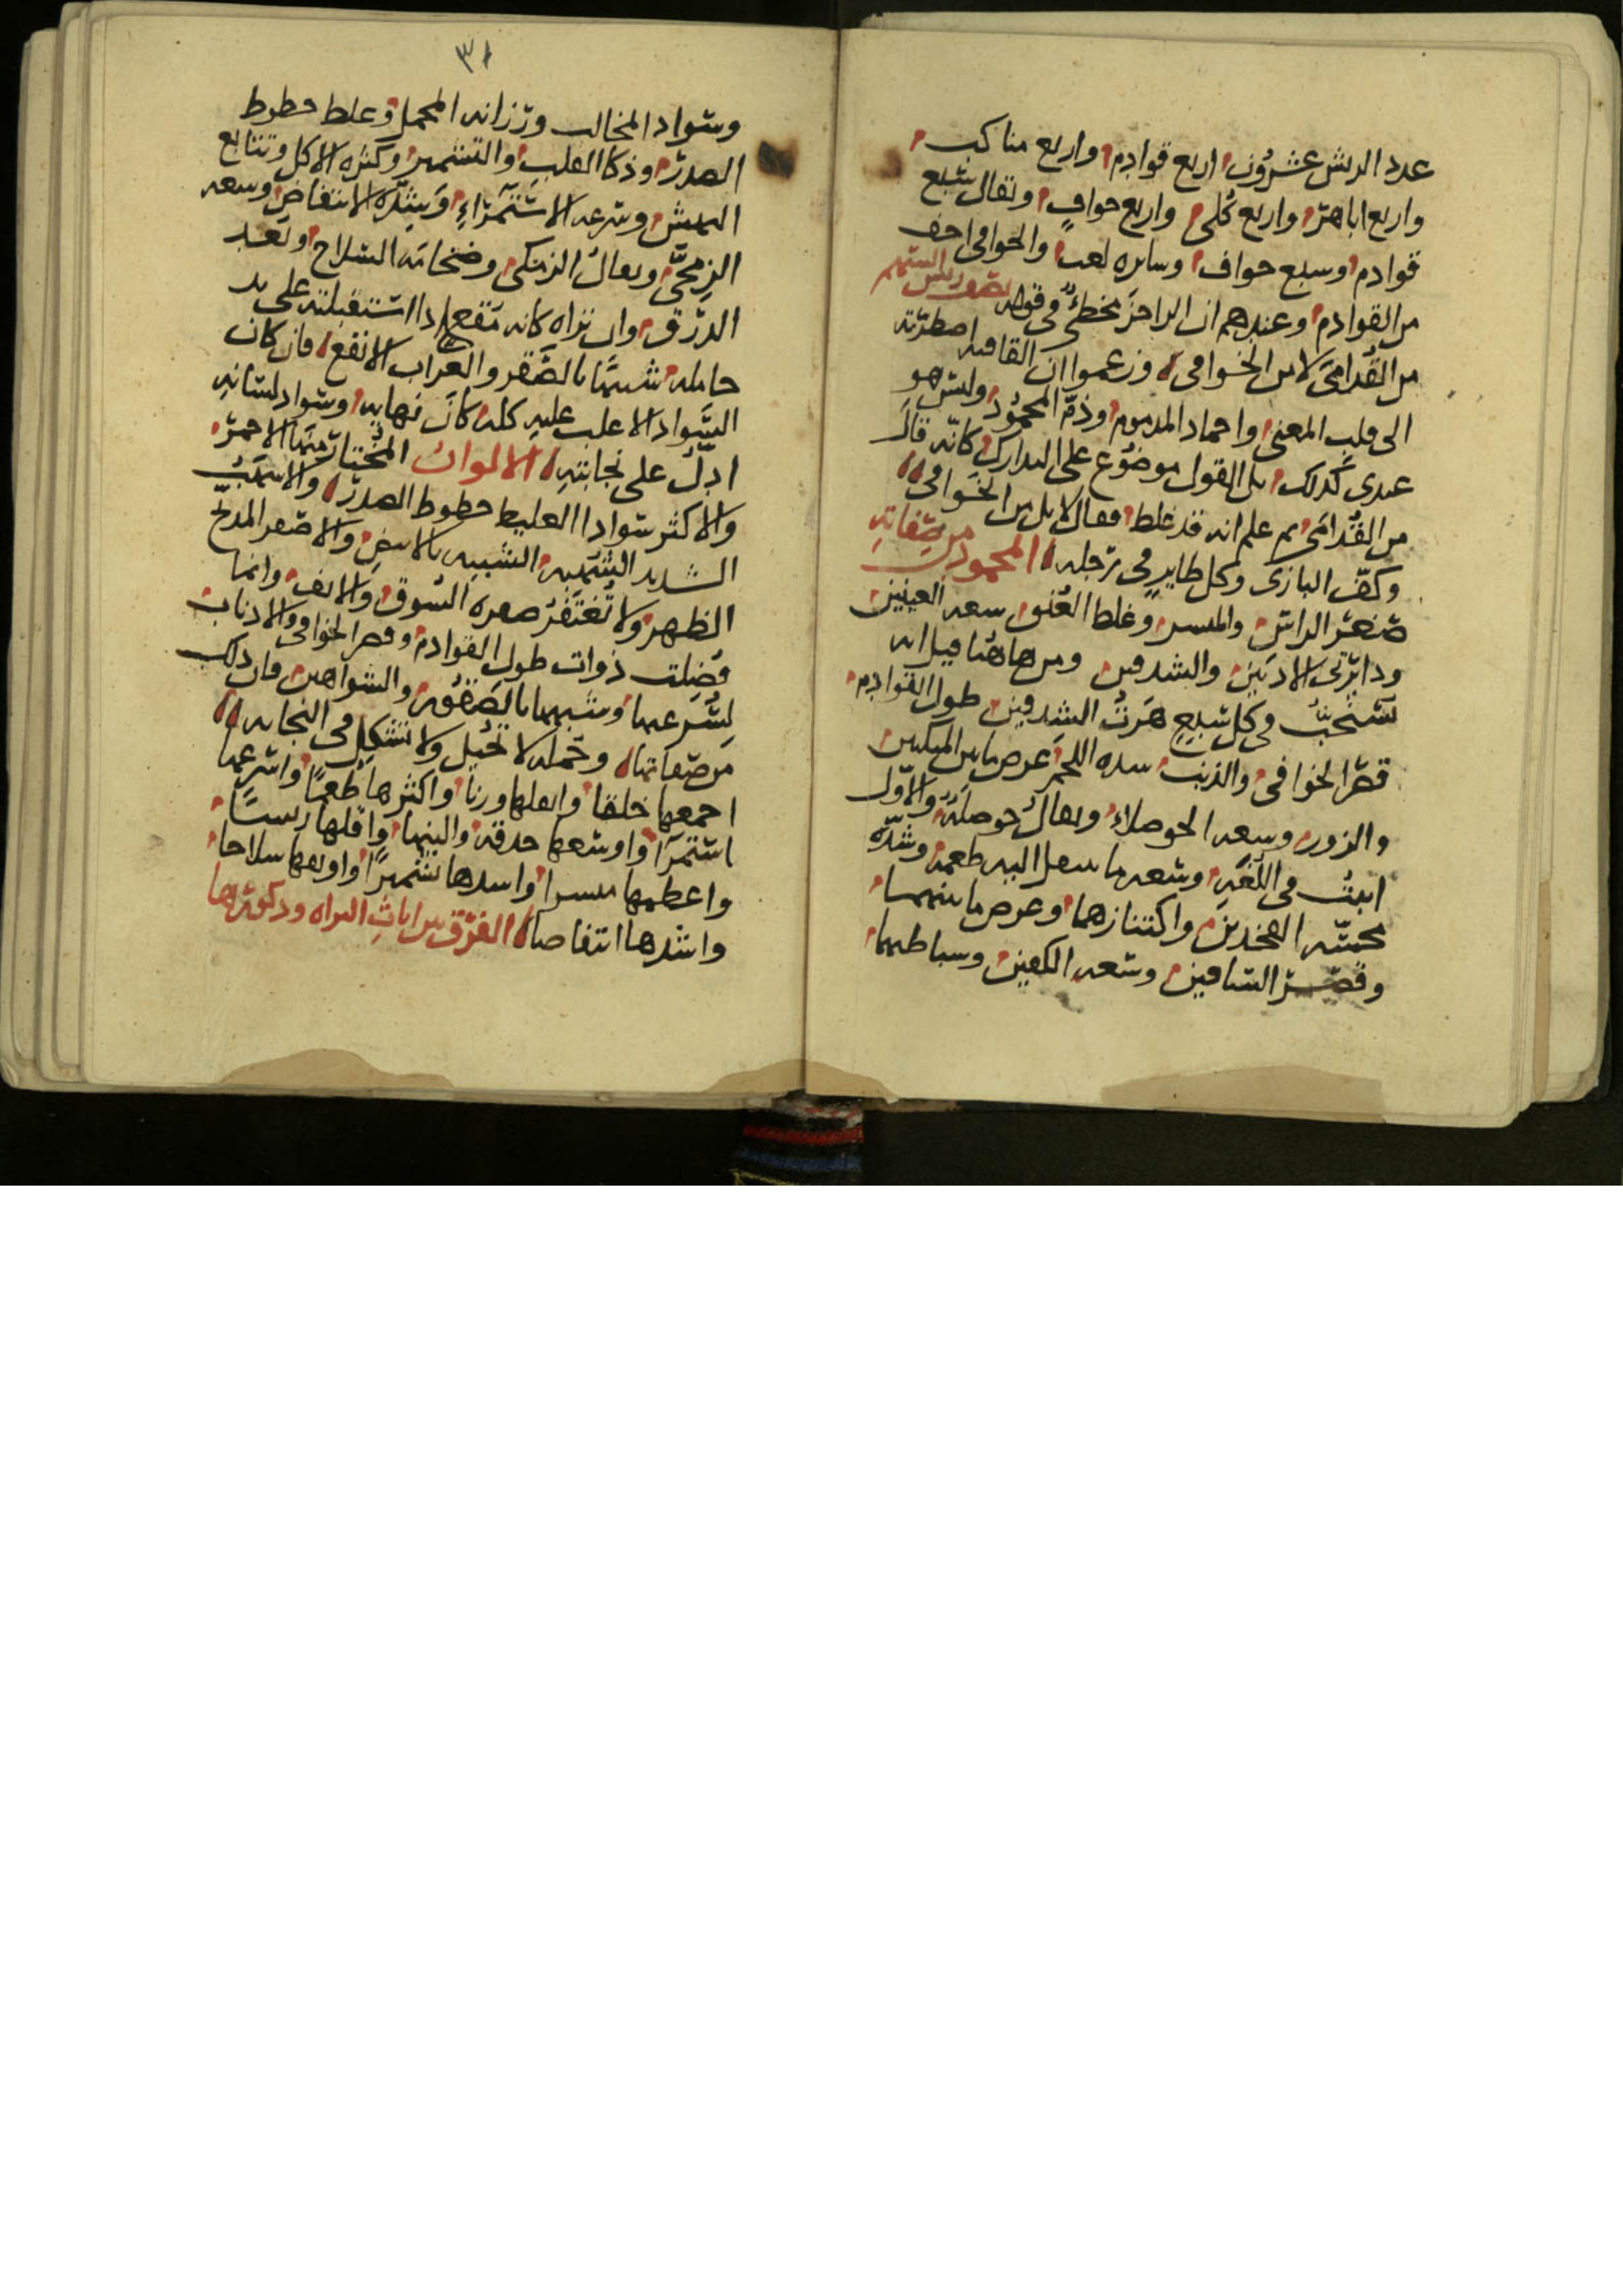 عدد الريش عشرون اربع قوادم واربع مناكب
واربع اباهر واربع كلى واربع خواف ويقال سبع
قوادم وسبع خواف وسايره لعب والخوافى اخف
من القوادم وعندهم ان الراجز مخطئ فى قوله
من القدامى لا من الخوافى وزعموا ان القافيه اضطرته
الى قلب المعنى واحماد المذموم وذم المحمود وليس هو
عندى كذلك بل القول موضوع على التدارك كانه قال
من القدامى ثم علم انه قد غلط فقال لا بل من الخوافى
وكف البازى وكل طاير فى رجله المحمود من صفاته
صغر الراس والمنسر وغلظ العنق سعه العينين
ودايرتى الاذنين والشدقين ومن هاهنا قيل انه
يستحب فى كل سبع هرت الشدقين طول القوادم
قصر الخوافى والذنب شده اللحم عرض ما بين المنكبين
والزور وسعه الحوصلاء ويقال حوصلة والاول
اثبت فى اللغه وسعه ما ينقل اليه طعمه وشدة
مجسه الفخذين واكتنازهما وعرض ما بينهما
وقصر الساقين وسعه الكفين وسباطهما
٣١
وسواد المخالب ورزانه المحمل وغلظ خطوط
الصدر وذكا القلب والتشمير وكثره الاكل وتتابع
النهش وسرعه الاستمراء وشدة الانتفاض وسعه
الزمجى ويقال الزمكى وضخامه السلاح وبعد
الذرق وان تراه كانه مقع اذا استقبلته على يد
حامله شبيها بالصقر والغراب الابقع فان كان
السواد الاغلب عليه كله كان نهايه وسواد لسانه
ادل على نجابته الالوان المختار منها الاحمر
والاكثر سوادا الغليظ خطوط الصدر والاشهب
الشديد الشهبه الشبيه بالابيض والاصفر المدبج
الظهر ولا تغتفر صفره السوق والانف وانما
فضلت ذوات طول القوادم وقصر الخوافى والاذناب
لسرعتها وشبهها بالصقور والشواهين فان ذلك
من صفاتها وجمله لا تخيل ولا تشكل فى النجابه
اجمعها خلقا واثقلها وزنا واكثرها طعما واسرعها
استمرا واوسعها حدقه والينها واقلها ريشا
واعظمها منسرا واشدها تشميرا واوبقها سلاحا
واشدها انتفاضا الفرق بين اناث البزاه وذكورها